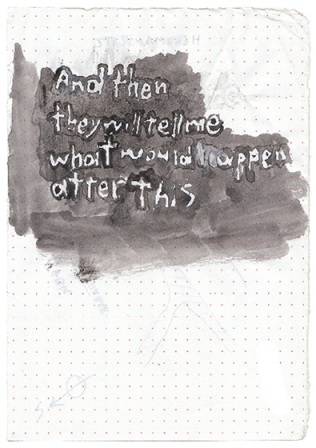 And then
they will tell me
what would happen
after this